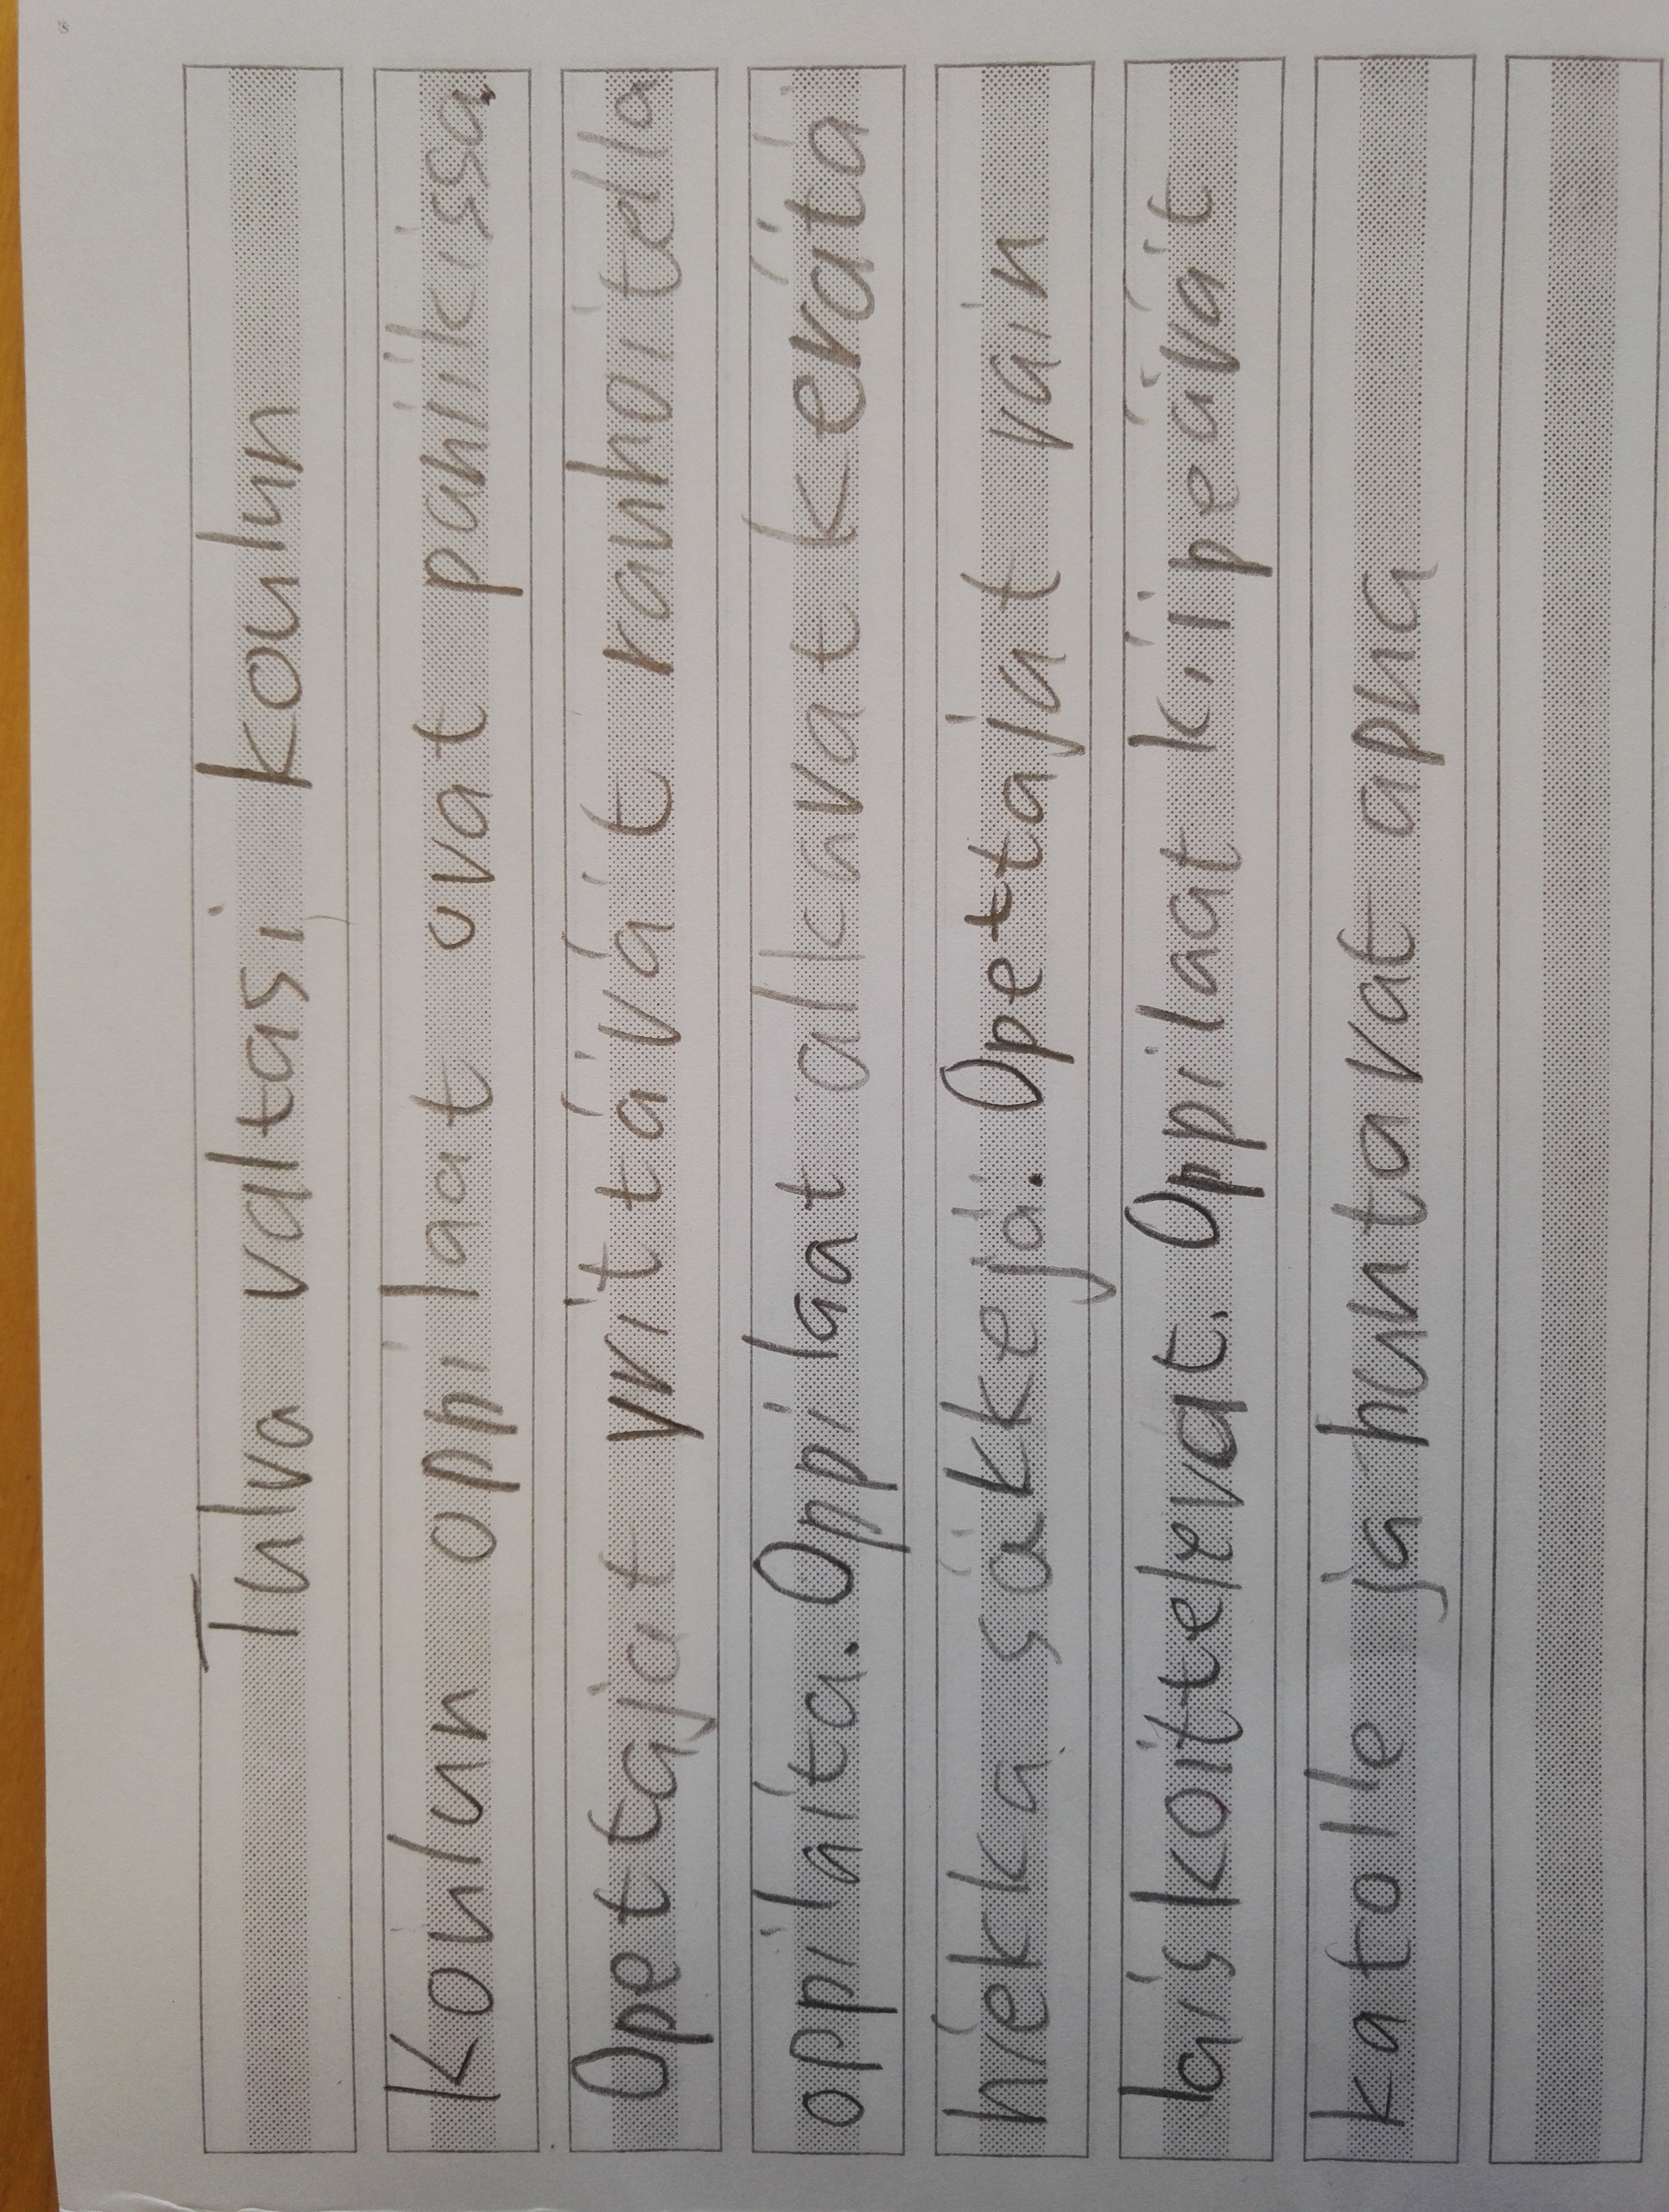 Tulva valtasi koulun
Koulun oppilaat ovat paniikissa.
Opettajat yrittävät rauhoitella
oppilaita. Oppilaat alkavat kerätä
hiekka säkkejä. Opettajat vain
läiskoittelevat. Oppilaat kiipeävät
katolle ja huntavat apua